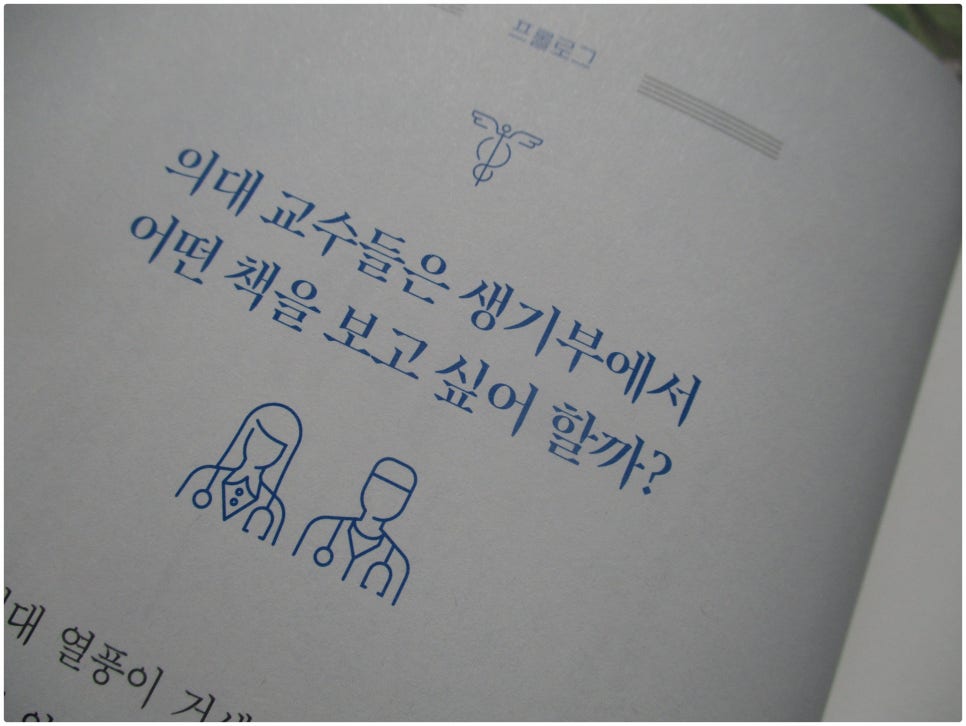 프롤로그
의대 교수들은 생기부에서
어떤 책을 보고 싶어 할까?
의대 열풍이